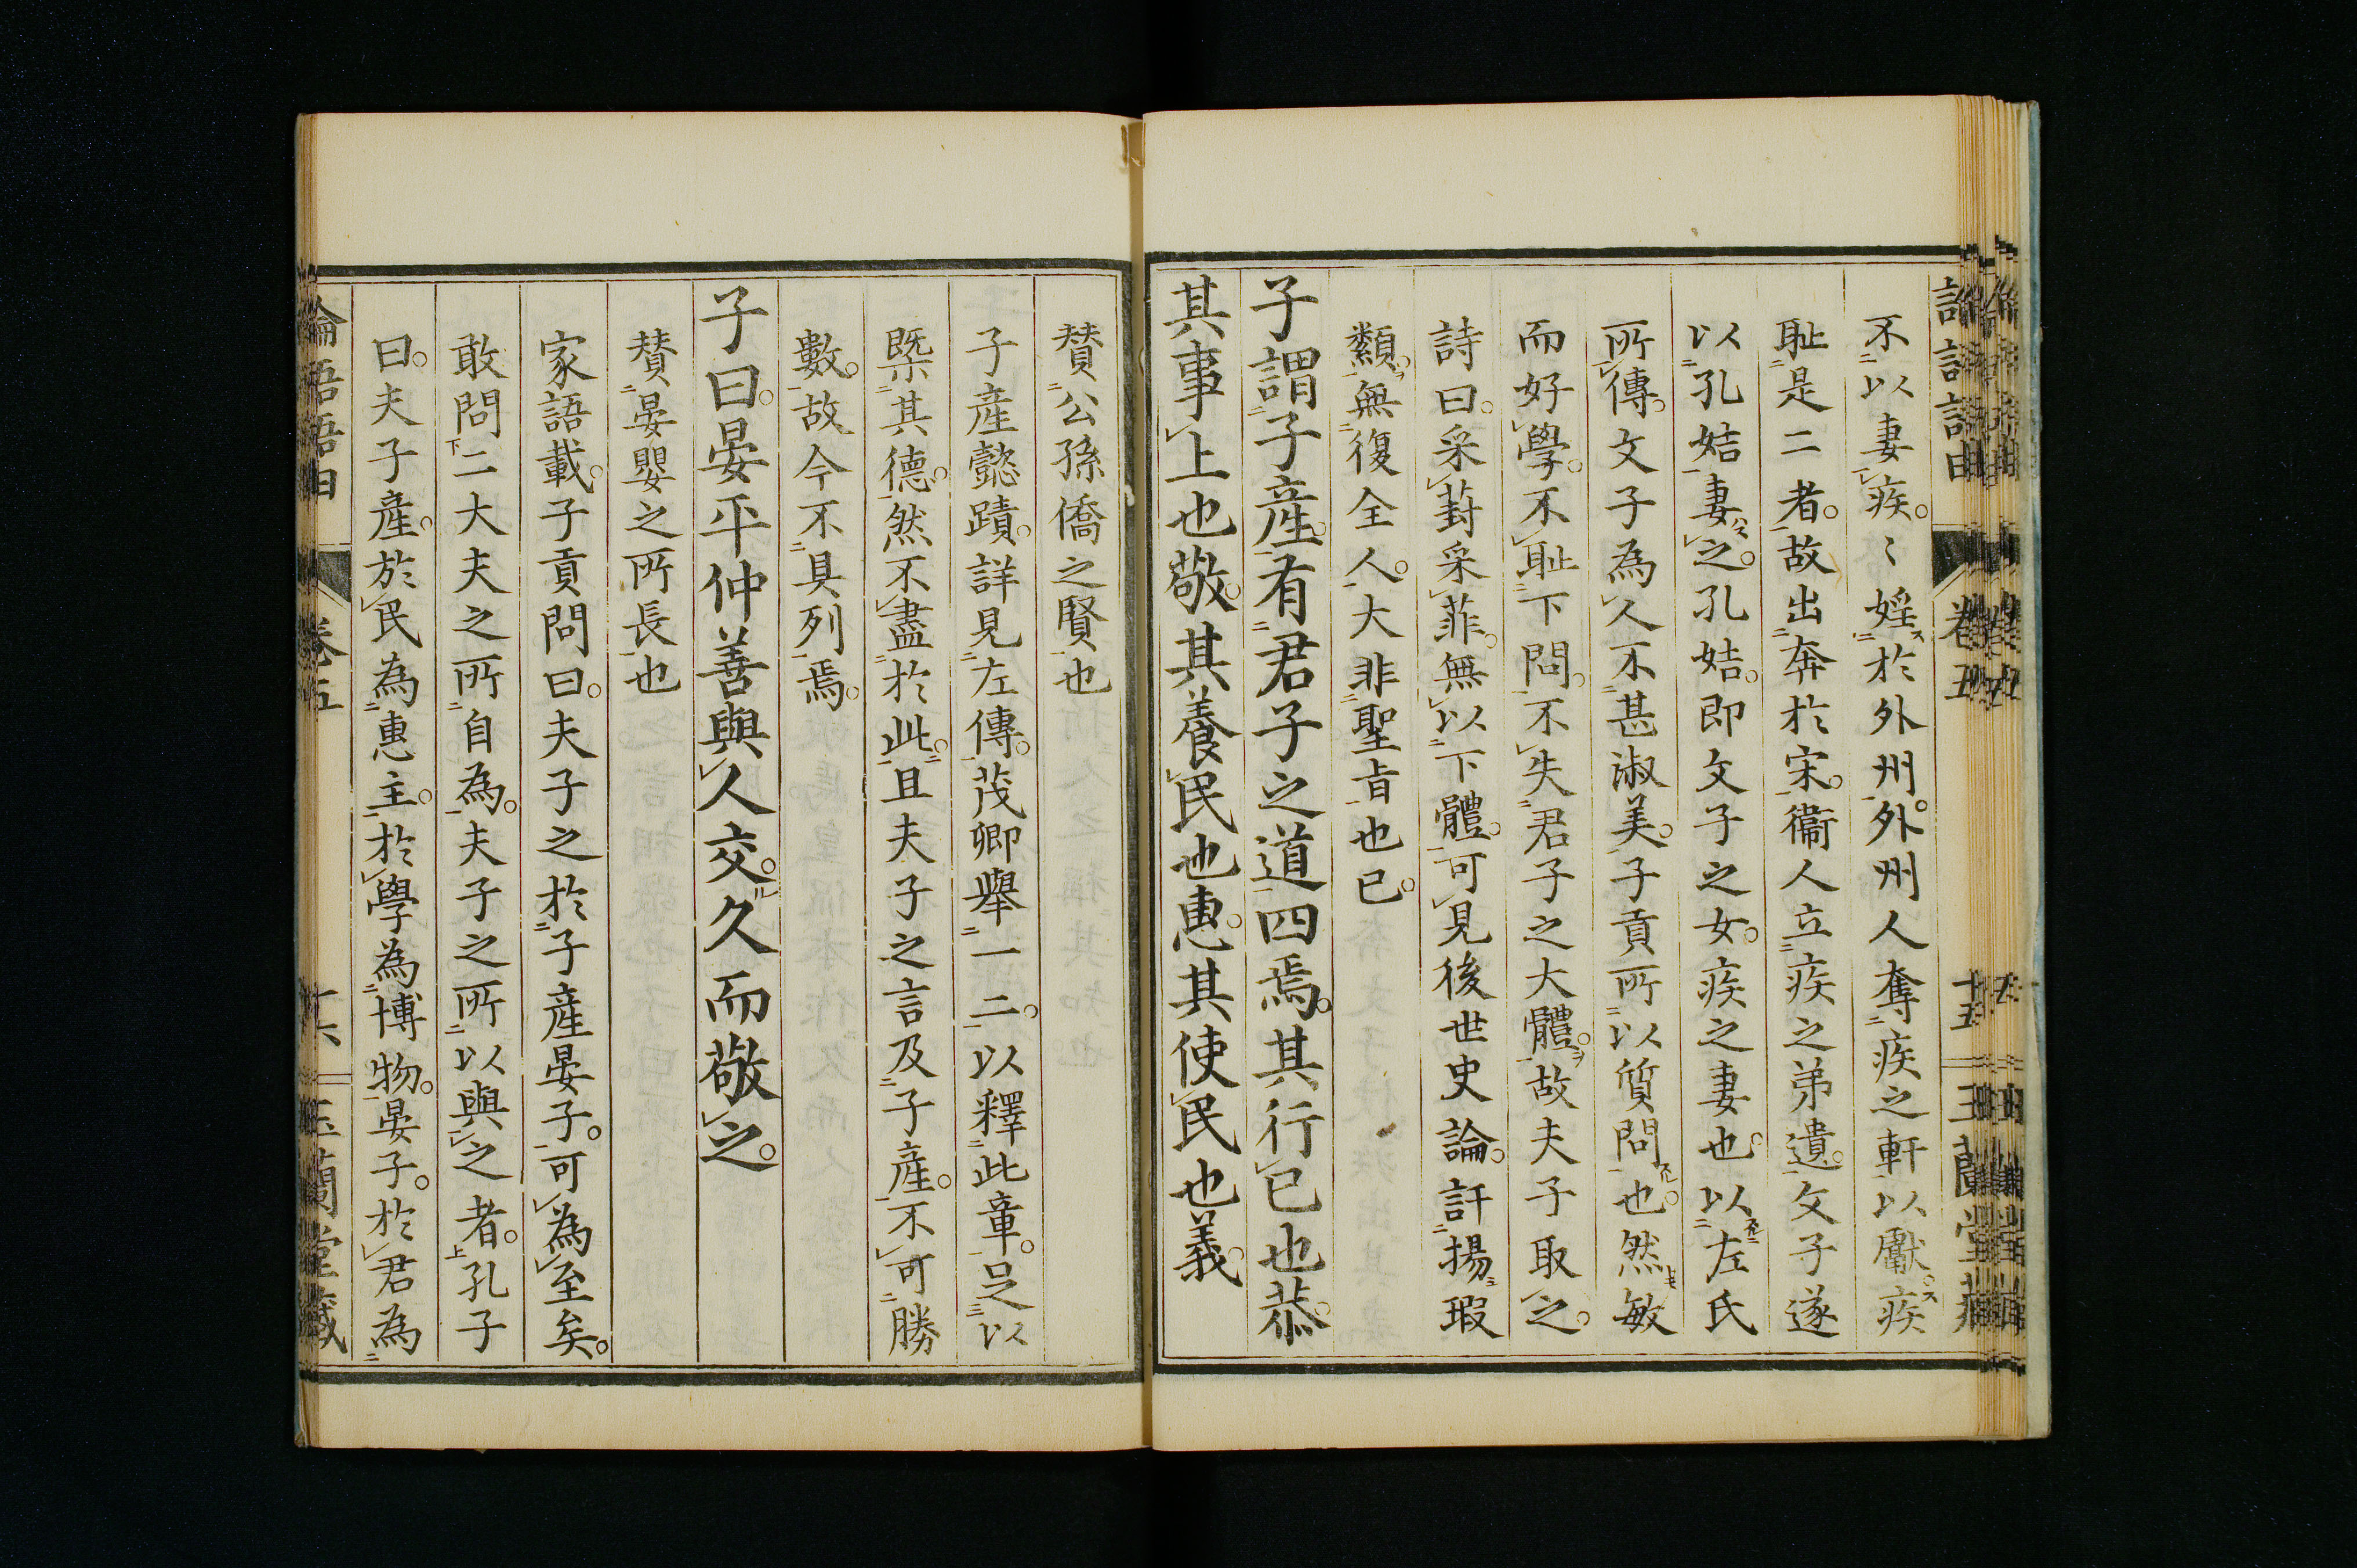 不以妻疾。〻婬於外州。外州人奪疾之軒以獻。疾
耻是二者。故出奔於宋。衞人立疾之弟遺。文子遂
以孔姞妻之。孔姞。即文子之女。疾之妻也。以左氏
所傳。文子為人不甚淑美。子貢所以質問也。然敏
而好學。不耻下問。不失君子之大體。故夫子取之。
詩曰。采葑采菲。無以下體。可見後世史論。訐揚瑕
纇。無復全人。大非聖旨也已。
子謂子產。有君子之道四焉。其行已也恭。
其事上也敬。其養民也惠。其使民也義。
賛公孫僑之賢也
子產懿蹟。詳見左傳。茂卿舉一二。以釋此章。足以
槩其德。然不盡於此。且夫子之言及子產。不可勝
數。故今不具列焉。
子曰。晏平仲善與人交。久而敬之。
賛晏嬰之所長也
家語載。子貢問曰。夫子之於子產晏子。可為至矣。
敢問二大夫之所自為。夫子之所以與之者。孔子
曰。夫子產。於民為惠主。於學為博物。晏子。於君為
論語語由 卷五 十六 玉蘭堂藏